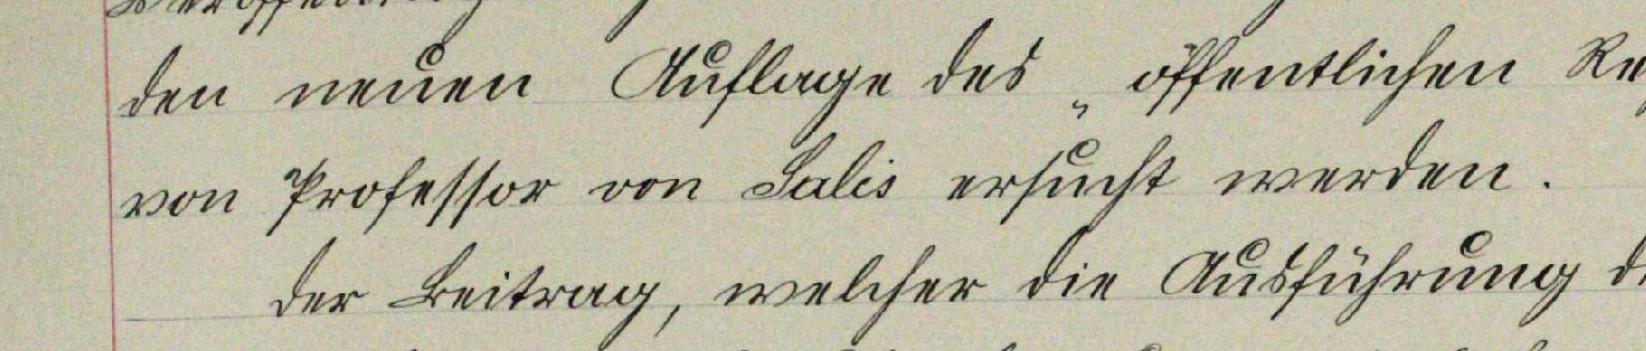 den neuen Auflage des „öffentlichen
von Professor von Salis ersucht werden.
der Beitrag, welcher die Ausführung